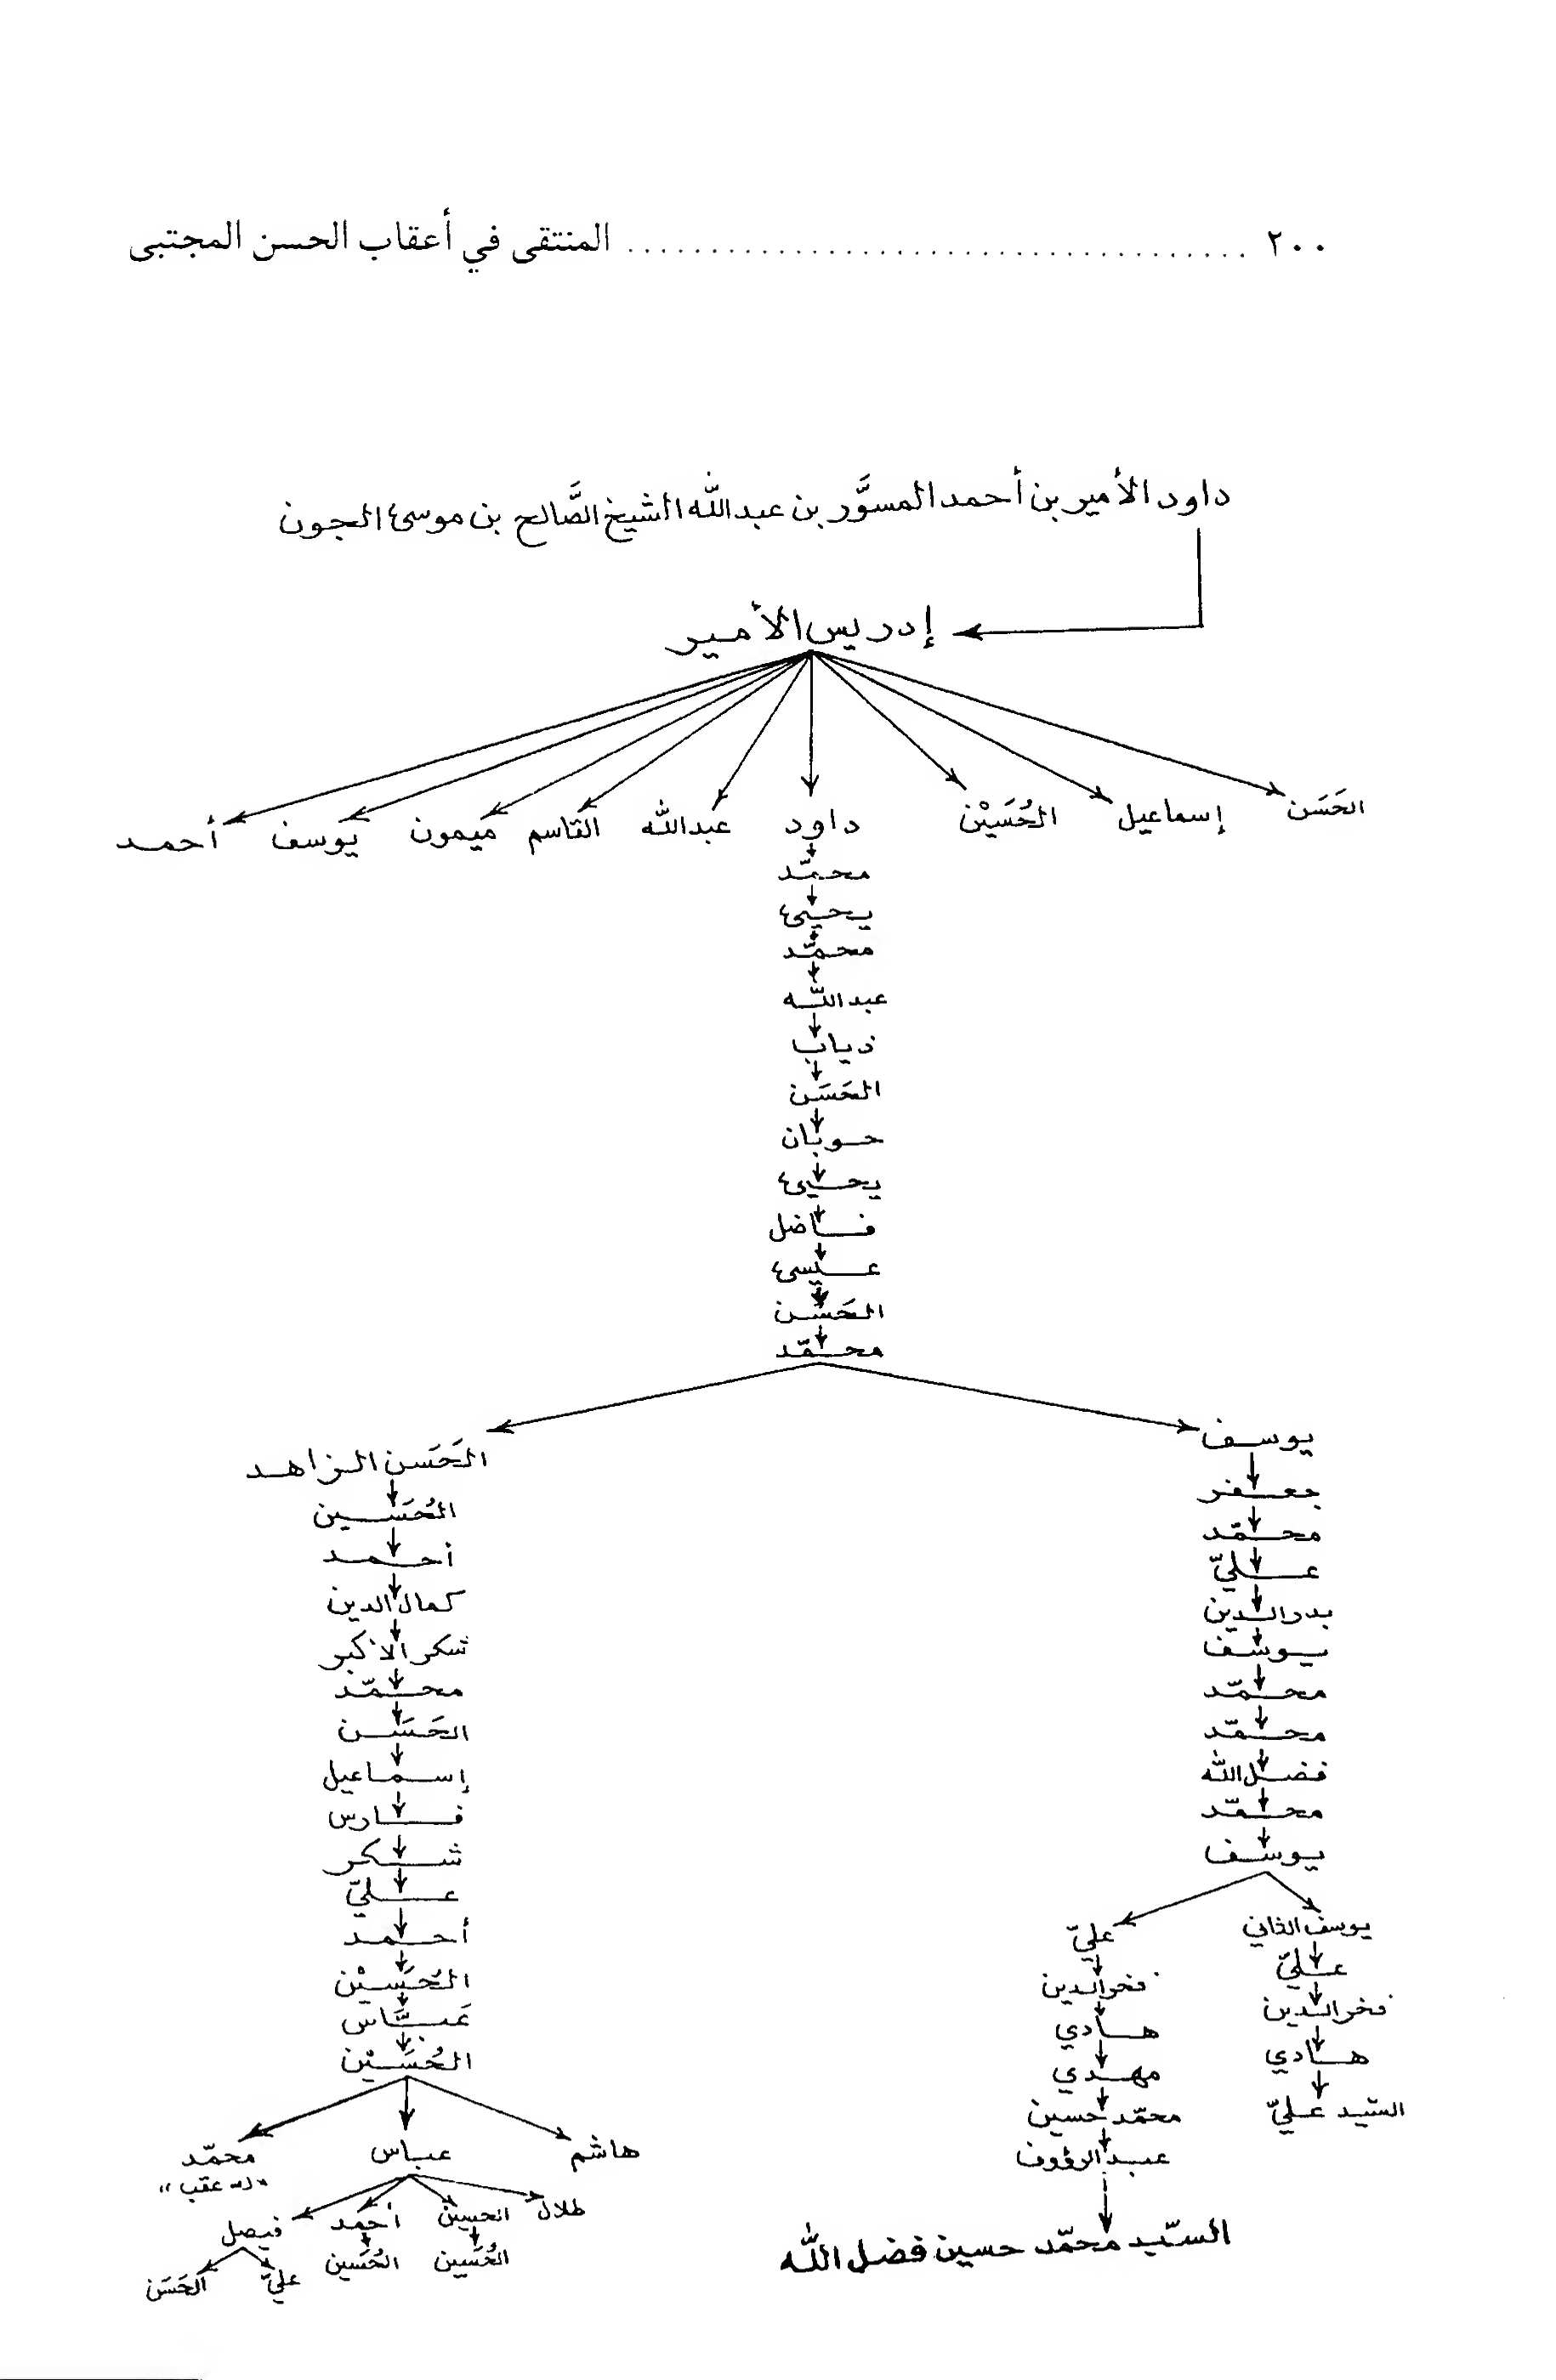 ٢٠٠ ........................................ المنتقى في أعقاب الحسن المجتبى
داود الأمير بن أحمد المسوَّر بن عبدالله الشيخ الصَّالح بن موسى الجون
إدريس الأمير
الحَسَن
إسماعيل
الحُسَيْن
داود
عبدالله
القاسم
ميمون
يوسف
أحمد
محمّد
يحيى
محمّد
عبدالله
ذياب
الحَسَن
حوبان
يحيى
فاضل
عيسى
الحَسَن
محمّد
يوسف
جعفر
محمّد
عليّ
بدرالدين
يوسف
محمّد
محمّد
فضل الله
محمّد
يوسف
يوسف الثاني
عليّ
فخرالدين
هادي
السّيد عليّ
عليّ
فخرالدين
هادي
مهدي
محمّد حسين
عبدالرؤوف
السّيد محمّد حسين فضل الله
الحَسَن الزاهد
الحُسَين
أحمد
كمال الدين
شكر الأكبر
محمّد
الحَسَن
إسماعيل
فارس
شكر
عليّ
أحمد
الحُسَيْن
عَبَّاس
الحُسَيْن
هاشم
عباس
محمّد
"له عقب"
طلال
الحسين
أحمد
فيصل
الحُسَين
الحُسَين
عليّ
الحَسَن